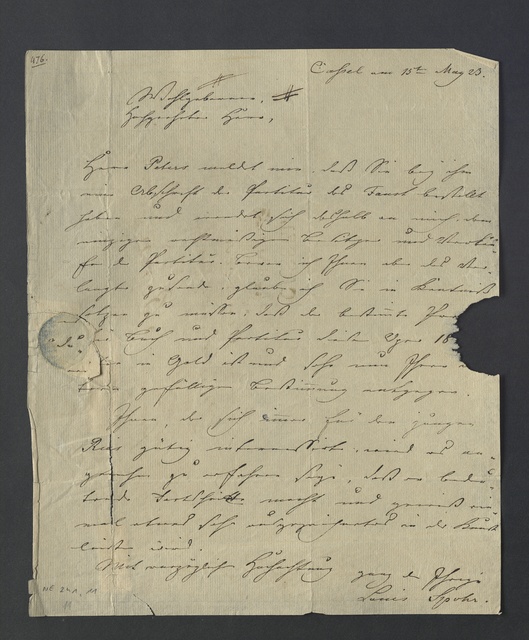 476.
Cassel am 15ten May 23.
Wohlgeborner,
Hochgeehrter Herr,
Herr Peters meldet mir, daß Sie bey ihm
eine Abschrift der Partitur des Faust bestellt
haben und wendet sich deshalb an mich, den
einzigen rechtmäßigen Besitzer und Verkäu-
fer der Partitur. Bevor ich Ihnen aber das Ver-
langte zusende, glaube ich Sie in Kenntniß
setzen zu müssen, daß der bestimte
Buch und Partitur dieser Oper
in Gold ist und sehe nun Ihrer
gefälligen Bestimmung entgegen.
Ihnen, der sich immer für den jungen
Ries gütig interessirte, wird es an-
genehm zu erfahren seyn, daß er bedeu-
tende Fortschritte macht und gewiß ein-
mal etwas sehr ausgezeichnetes in der Kunst
leisten wird.
Mit vorzüglicher Hochachtung ganz der Ihrige
Louis Spohr.